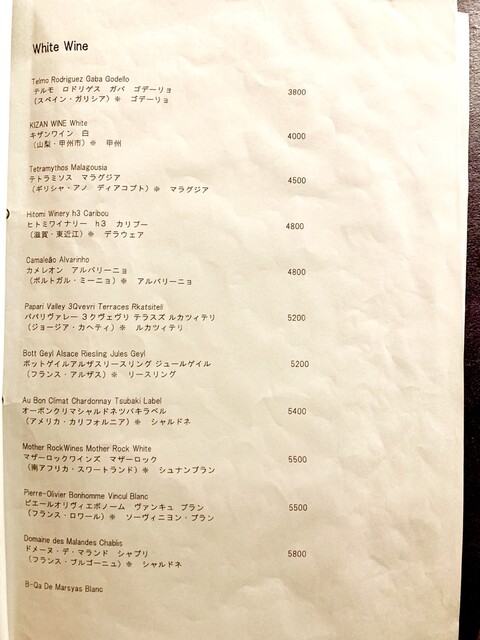 White Wine
Telmo Rodriguez Gaba Godello
テルモ ロドリゲス ガバ ゴデーリョ 3800
(スペイン・ガリシア)※ ゴデーリョ
KIZAN WINE White
キザンワイン 白 4000
(山梨・甲州市)※ 甲州
Tetramythos Malagousia
テトラミソス マラグジア 4500
(ギリシャ・アノ ディアコプト)※ マラグジア
Hitomi Winery h3 Caribou
ヒトミワイナリー h3 カリブー 4800
(滋賀・東近江)※ デラウェア
Camaleão Alvarinho
カメレオン アルバリーニョ 4800
(ポルトガル・ミーニョ)※ アルバリーニョ
Papari Valley 3Qvevri Terraces Rkatsiteli
パパリヴァレー 3クヴェヴリ テラスズ ルカツィテリ 5200
(ジョージア・カヘティ)※ ルカツィテリ
Bott Geyl Alsace Riesling Jules Geyl
ボットゲイルアルザスリースリング ジュールゲイル 5200
(フランス・アルザス)※ リースリング
Au Bon Climat Chardonnay Tsubaki Label
オーボンクリマシャルドネツバキラベル 5400
(アメリカ・カリフォルニア)※ シャルドネ
Mother RockWines Mother Rock White
マザーロックワインズ マザーロック 5500
(南アフリカ・スワートランド)※ シュナンブラン
Pierre-Olivier Bonhomme Vincul Blanc
ピエールオリヴィエボノーム ヴァンキュ ブラン 5500
(フランス・ロワール)※ ソーヴィニヨン・ブラン
Domaine des Malandes Chablis
ドメーヌ・デ・マランド シャブリ 5800
(フランス・ブルゴーニュ)※ シャルドネ
B-Qa De Marsyas Blanc